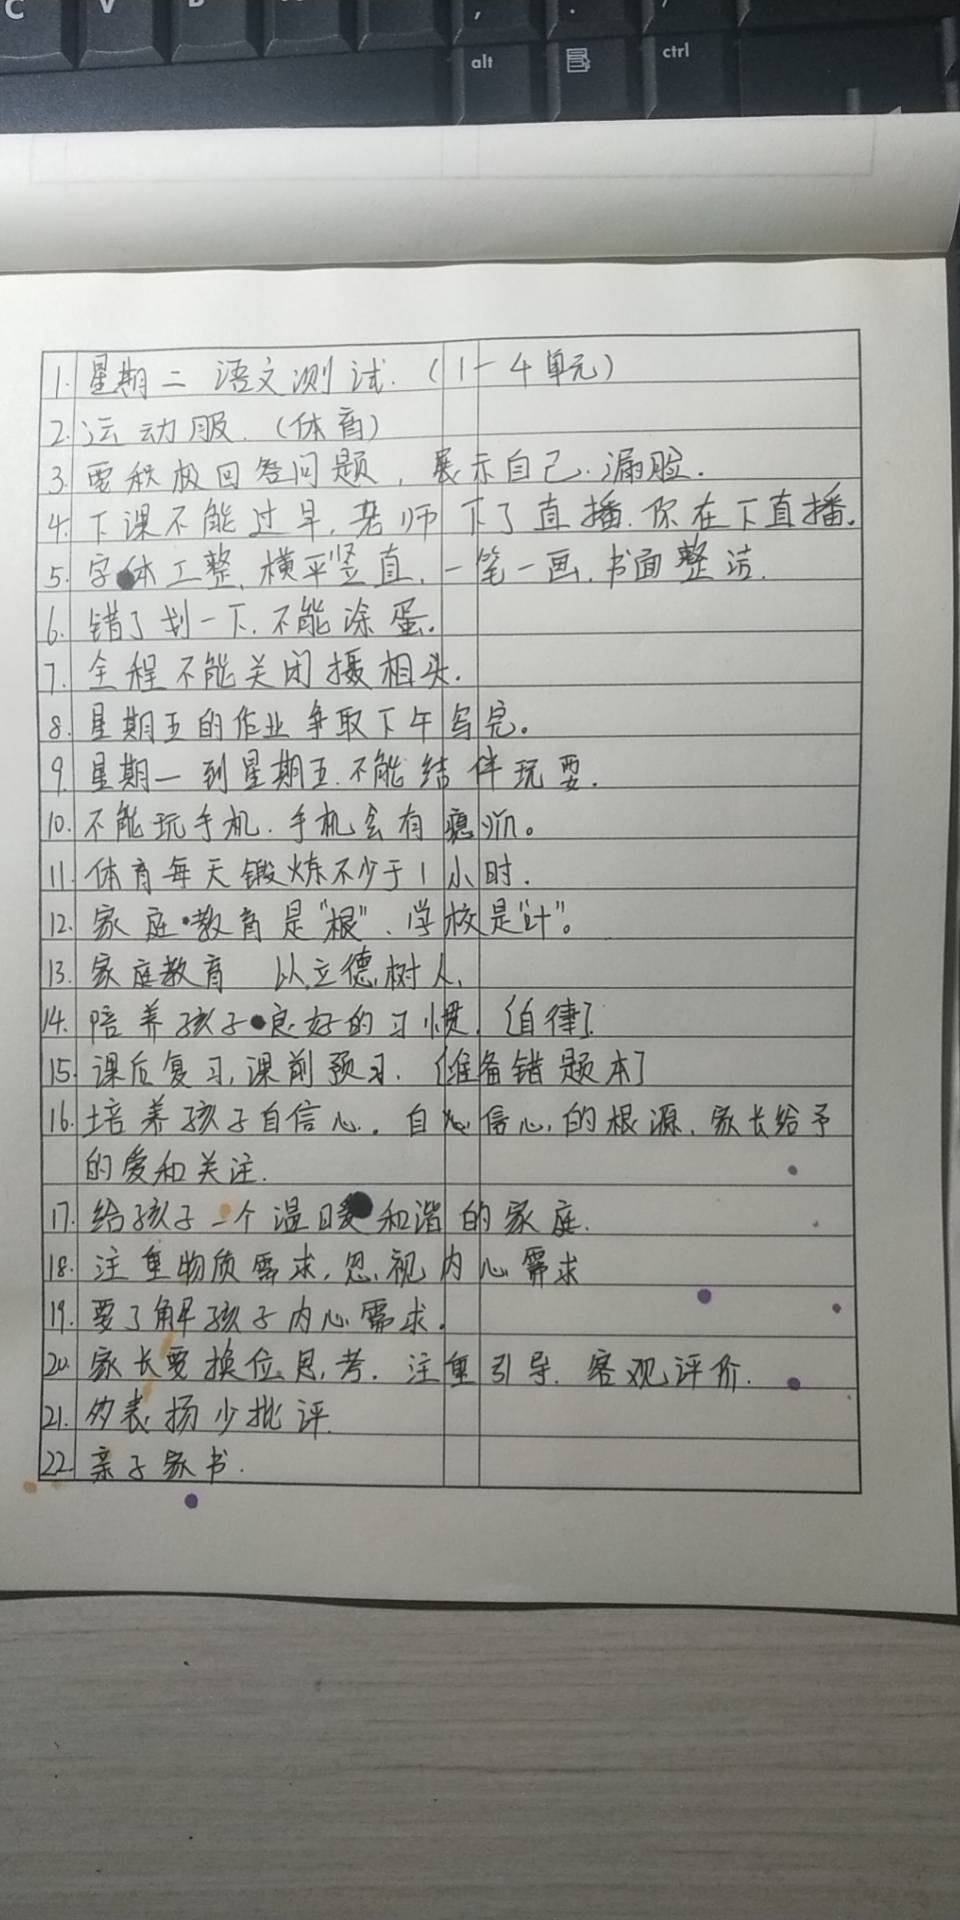 C V B , . /
alt ctrl
1. 星期二 语文测试.(1-4单元)
2. 运动服.(体育)
3. 要积极回答问题,展示自己.漏脸.
4. 下课不能过早,老师下了直播.你在下直播.
5. 字体工整,横平竖直,一笔一画.书面整洁.
6. 错了划一下.不能涂蛋.
7. 全程不能关闭摄相头.
8. 星期五的作业争取下午写完。
9. 星期一到星期五.不能结伴玩耍.
10. 不能玩手机.手机会有瘾
11. 体育每天锻炼不少于1小时.
12. 家庭教育是"根".学校是"叶"。
13. 家庭教育 以立德树人.
14. 培养孩子良好的习惯.[自律].
15. 课后复习,课前预习.[准备错题本]
16. 培养孩子自信心。自信心的根源.家长给予
的爱和关注.
17. 给孩子一个温暖和谐的家庭.
18. 注重物质需求,忽视内心需求
19. 要了解孩子内心需求.
20. 家长要换位思考.注重引导.客观评价.
21. 多表扬少批评.
22. 亲子家书.